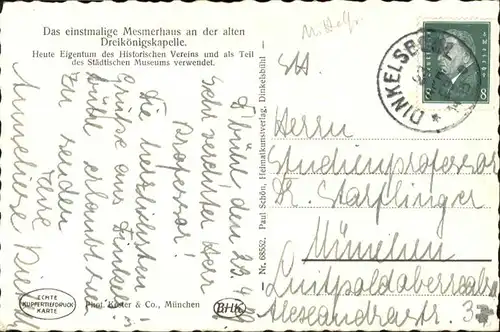 Das einstmalige Mesmerhaus an der alten
Dreikönigskapelle.
Heute Eigentum des Historischen Vereins und als Teil
des Städtischen Museums verwendet.
D'bühl, den 29.4.
Sehr verehrter Herr
Professor!
Die herzlichsten
Grüße aus Dinkels-
bühl erlaubt sich
zu senden
Ihre
Anneliese
ECHTE
KUPFERTIEFDRUCK
KARTE
Phot. Kester & Co., München
BHK
Nr. 68552. Paul Schön, Heimatkunstverlag, Dinkelsbühl
DINKELSBÜHL
8
8
Herrn
Studienprofessor
Dr. Starflinger
München
Luitpoldoberrealsch.
Alexandrastr. 3